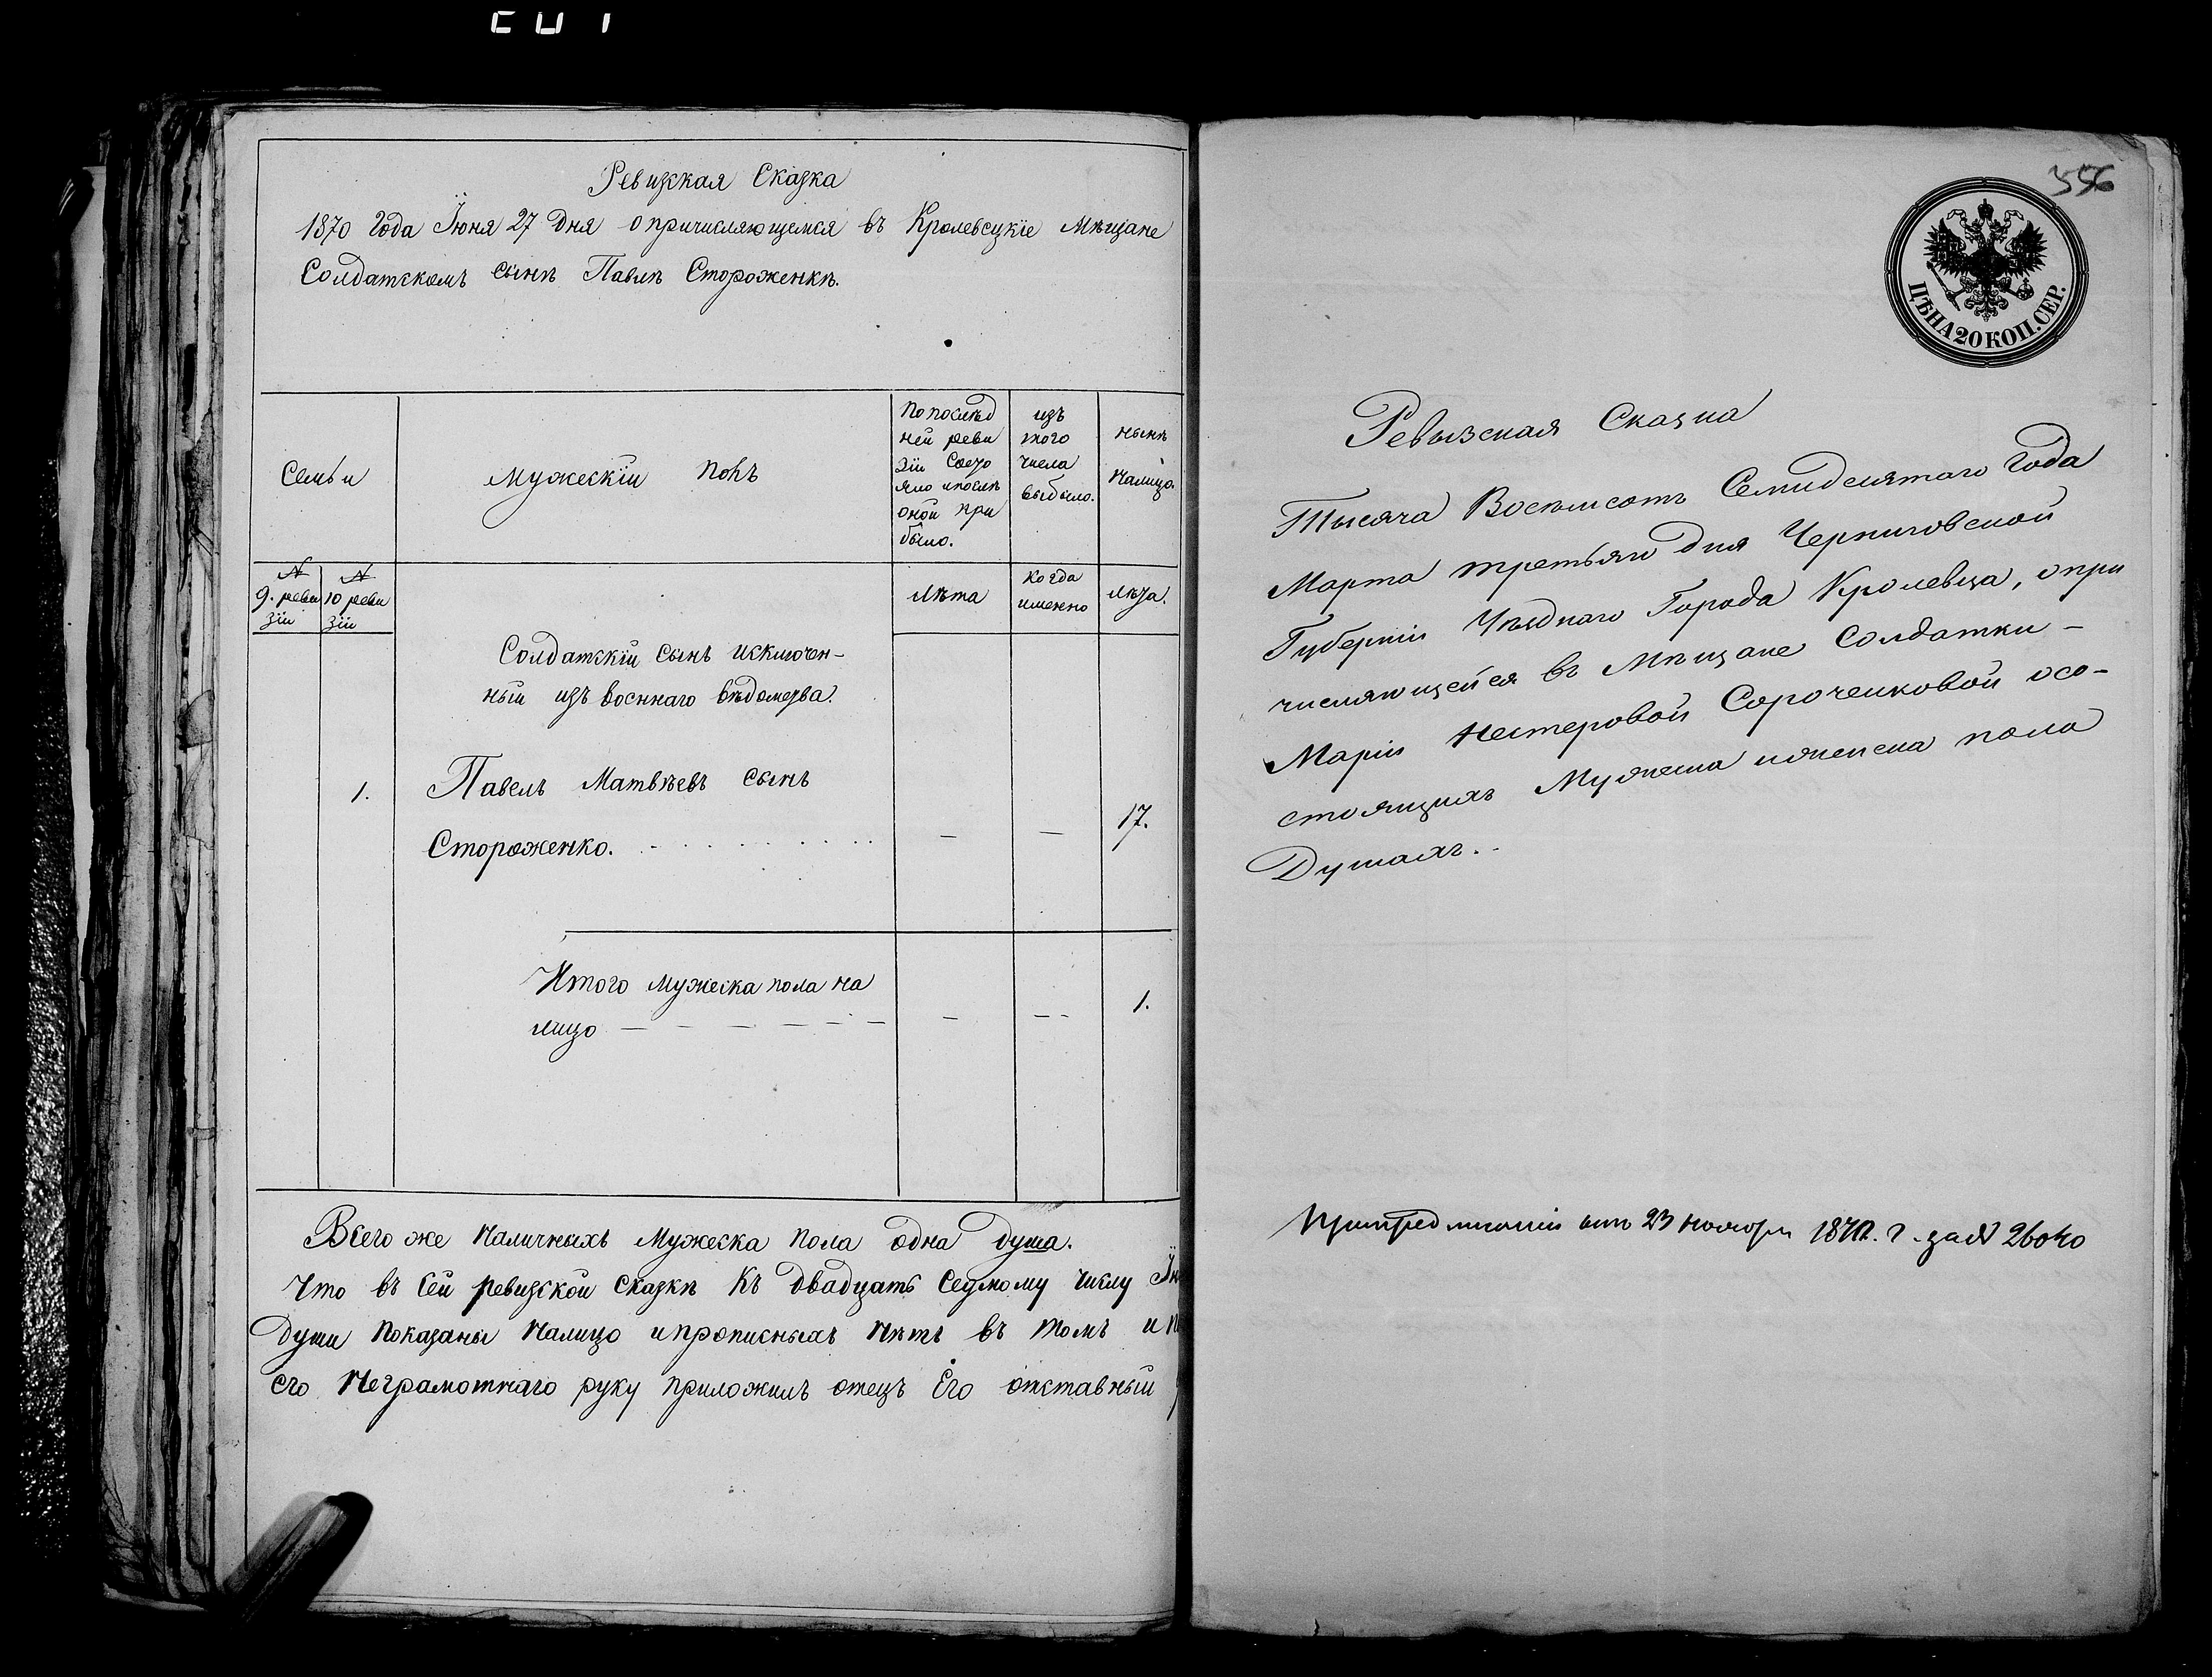 Ревизкая Сказка
1870 Года Їюня 27 Дня о причисляющемся въ Кролевецкіе Мѣщане
Солдатскомъ сынѣ Павлѣ Стороженкѣ.
Семьи
Мужескїй полъ
По послѣд
ней реви
зїи состо
яло и послѣ
оной при
было.
изъ
того
числа
выбыло.
нынѣ
Налицо.
№
9. реви
зїи
№
10 реви
зїи
Лѣта
Когда
именно
Лѣта.
Солдатскїй сынъ исключен-
ный изъ военнаго вѣдомства.
1.
Павелъ Матвѣевъ сынъ
Стороженко. — — 17.
Итого мужеска пола на
лицо — — — 1.
Всего же Наличныхъ Мужеска пола одна душа.
Что въ сей ревизской сказкѣ Къ двадцать седмому числу Їю
души Показаны Налицо и прописныхъ Нѣтъ въ томъ и
его Неграмотнаго руку приложилъ отецъ Его отставный
356
ЦѢНА 20 КОП. СЕР.
Ревызская Сказка
Тысяча Восемсотъ Семидесятаго Года
Марта третьяго дня Черниговской
Губерніи Уѣзднаго Города Кролевца, о при
числяющейся въ Мѣщане Солдатки-
Маріи Нестеровой Сороченковой осо-
стоящихъ Мужеска и женска пола
Душахъ..
23 ноября 1870. г. за №